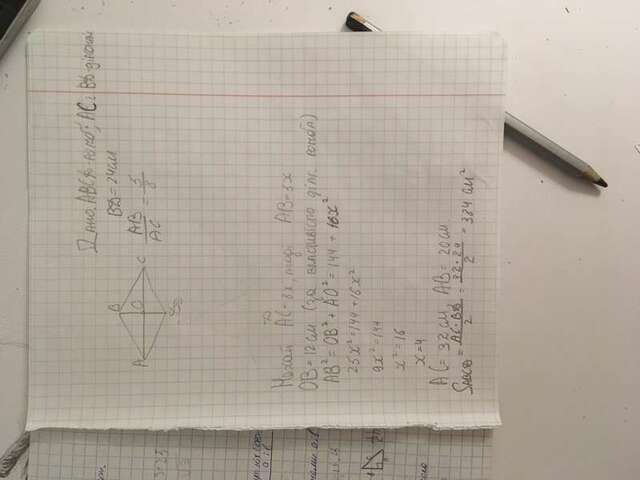 Дано: ABCD - ромб; AC і BD - діагоналі
BD = 24 см
AB/AC = 5/8
B
A O C
D
Нехай AC = 8x, тоді AB = 5x
OB = 12 см (за властивістю діаг. ромба)
AB² = OB² + AO² = 144 + 16x²
25x² = 144 + 16x²
9x² = 144
x² = 16
x = 4
AC = 32 см AB = 20 см
= AC · BD / 2 = 32 · 24 / 2 = 384 см²